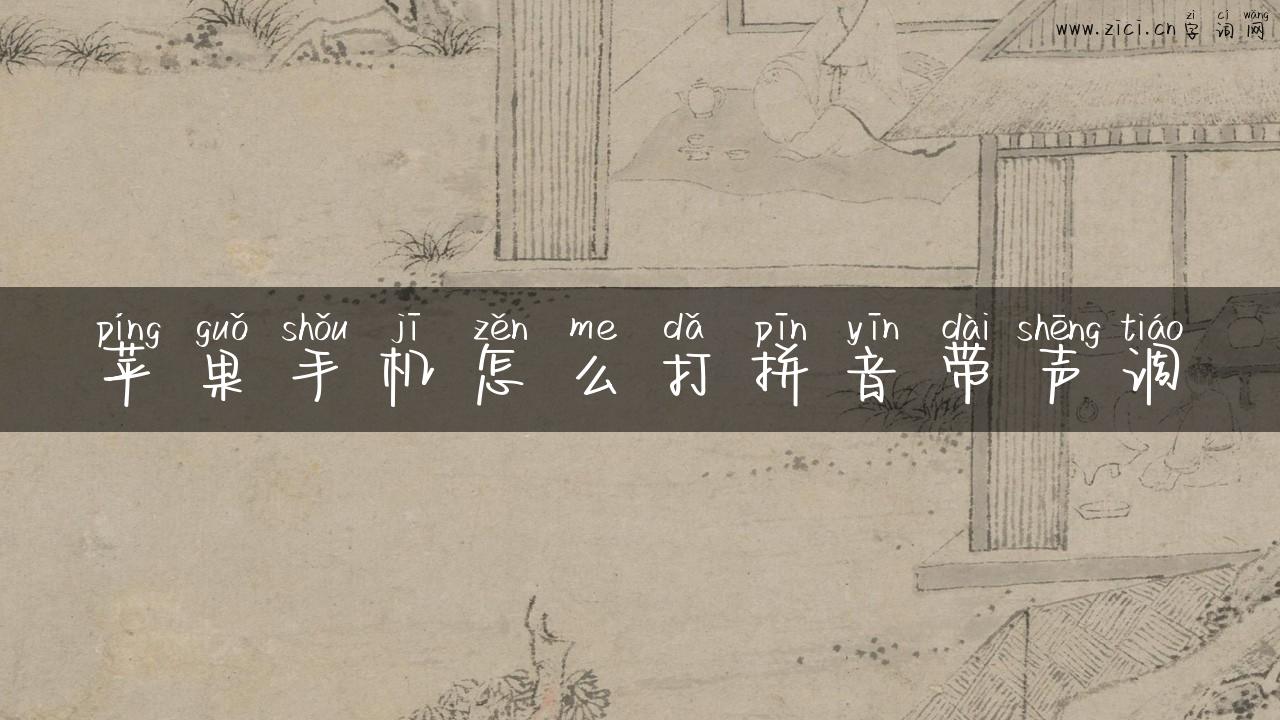 zì cí wǎng
www.zici.cn 字词网
píng guǒ shǒu jī zěn me dǎ pīn yīn dài shēng tiáo
苹果手机怎么打拼音带声调